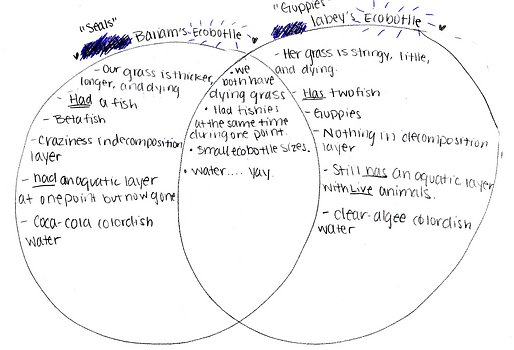 "Seals"
Bariam's Ecobottle
"Guppies"
Iabey's Ecobottle
- Our grass is thicker,
longer, and dying
- Had a fish
- Betafish
- Craziness in decomposition
layer
- had an aquatic layer
at one point but now gone
- Coca-cola colordish
water
• we
both have
dying grass
• Had fishies
at the same time
during one point.
• small ecobottle sizes.
• water.... yay.
- Her grass is stringy, little,
and dying.
- Has two fish
- Guppies
- Nothing in decomposition
layer
- Still has an aquatic layer
with Live animals.
- clear-algee colordish
water